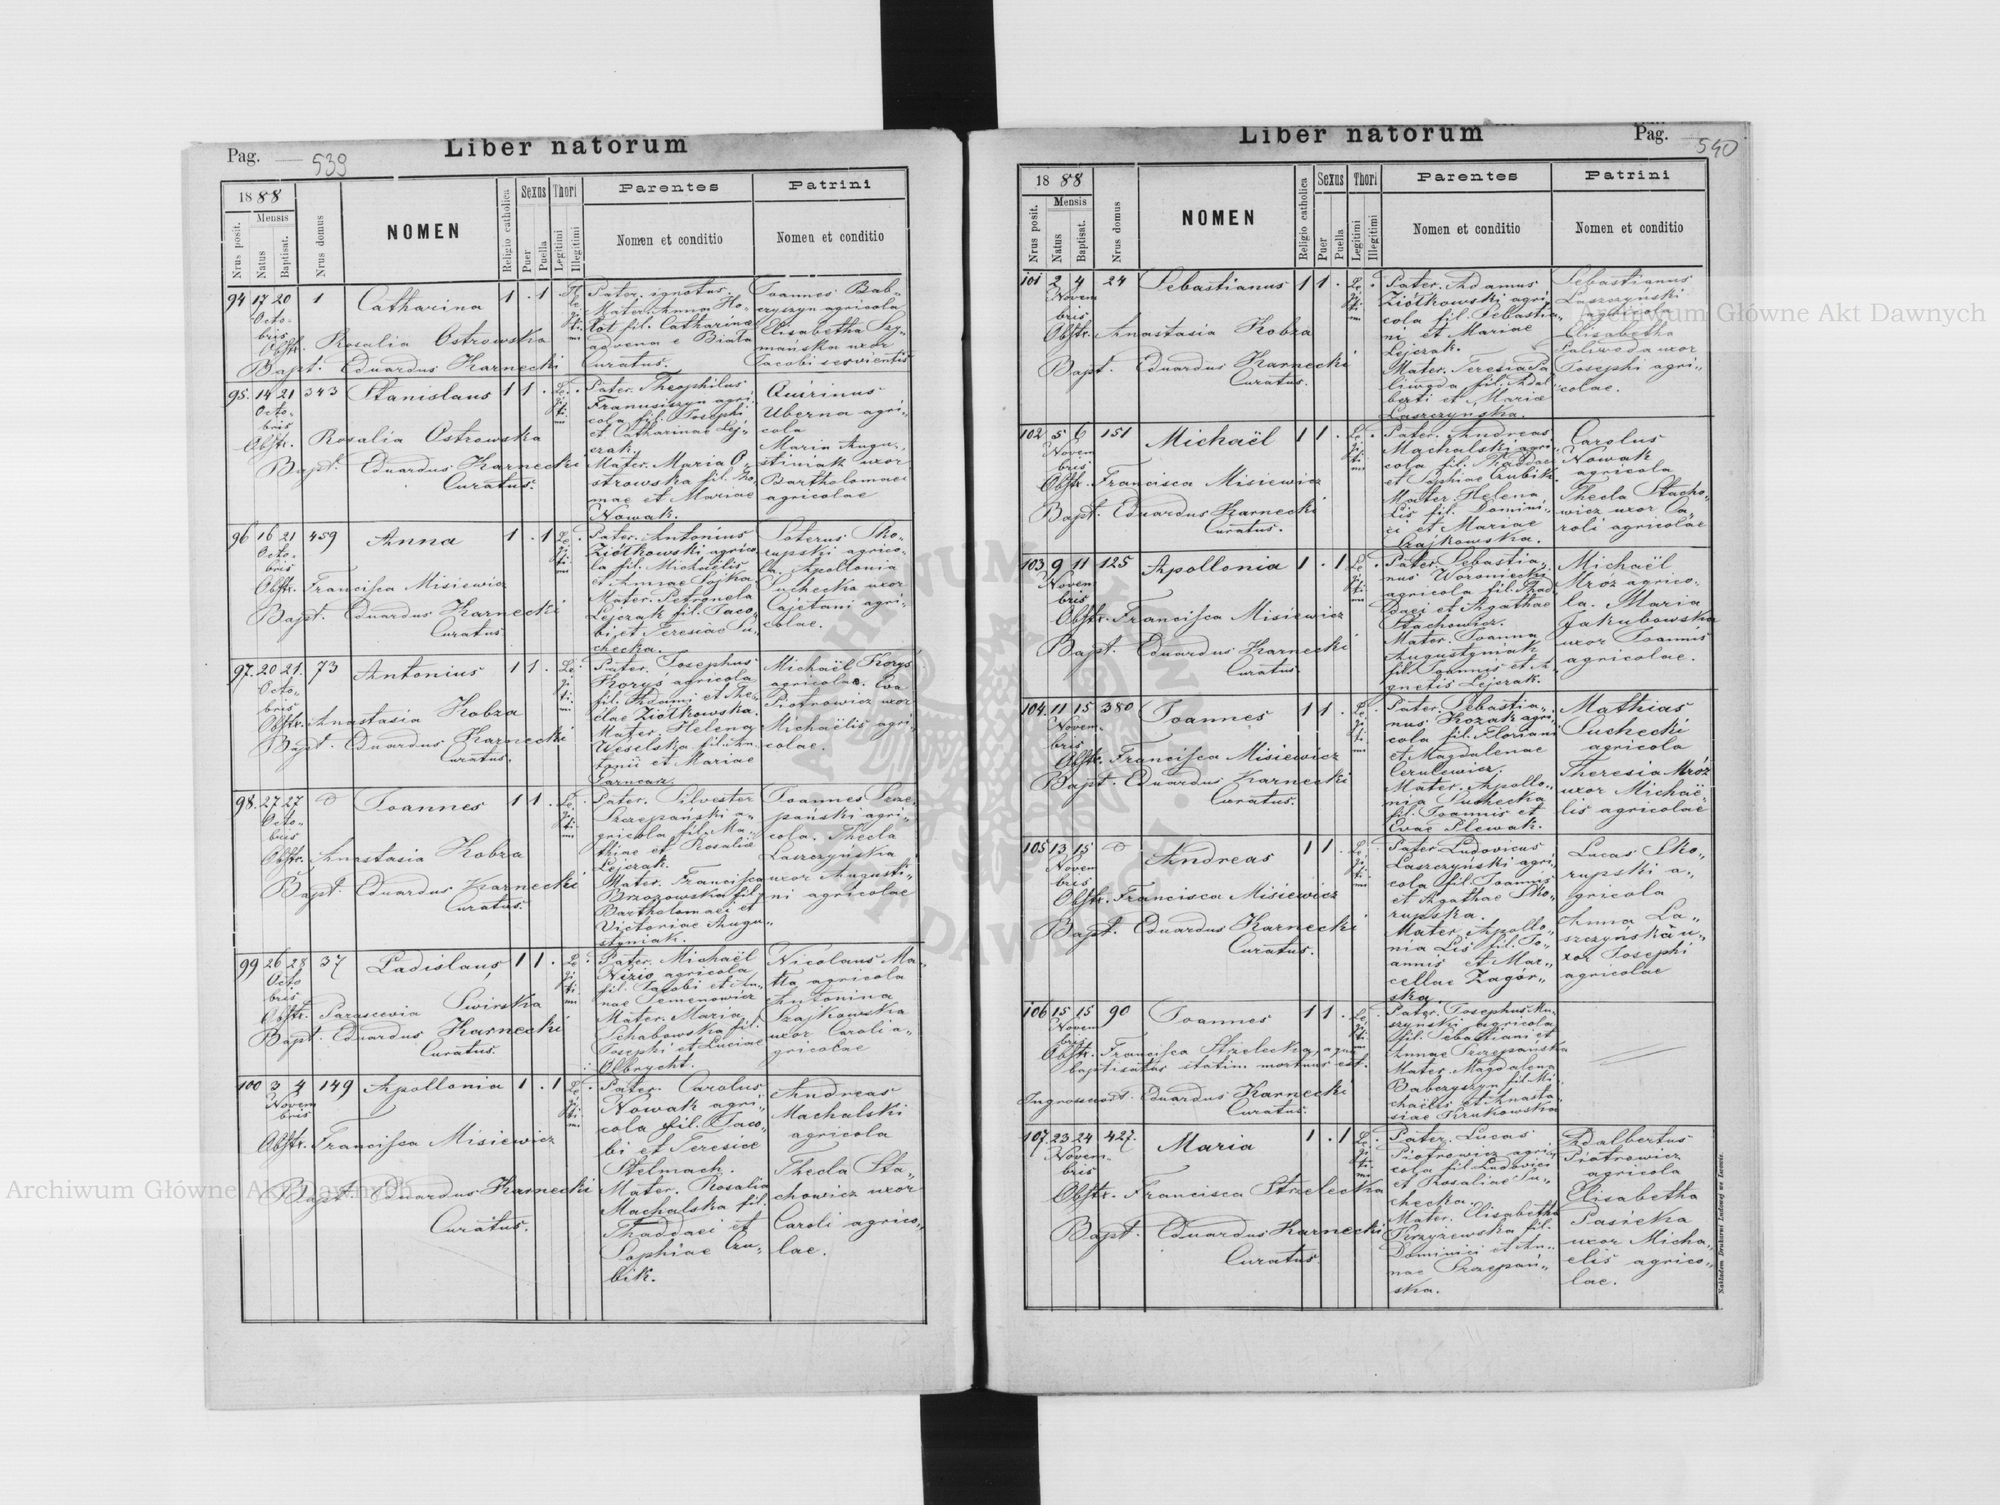 Pag. 539
Liber natorum
1888
Nrus posit.
Mensis
Natus
Baptisat.
Nrus domus
NOMEN
Religio catholica
Sexus
Puer
Puella
Thori
Legitimi
Illegitimi
Parentes
Nomen et conditio
Patrini
Nomen et conditio
94 17 20 1 Catharina 1 . 1
Octo-
bris
Obstr. Rosalia Ostrowska
Bapt. Eduardus Karnecki Curatus.
Pater. ignotus.
Mater Anna
fil. Catharinae
advena e Biała
Joannes Bab-
czyszyn agricola
Elisabetha Szy-
mańska uxor
Jacobi servientis
95. 14 21 343 Stanislaus 1 1 .
Octo-
bris
Obstr. Rosalia Ostrowska
Bapt. Eduardus Karnecki
Curatus.
Pater. Theophilus
Franusiszyn agri-
cola fil. Josephi
et Catharinae Lej-
czak.
Mater. Maria O-
strowska fil. Tho
mae et Mariae
Nowak.
Quirinus
Uberna agri-
cola
Maria Augu-
stiniak uxor
Bartholomaei
agricolae
96 16 21 459 Anna 1 . 1
Octo-
bris
Obstr. Francisca Misiewicz
Bapt. Eduardus Karnecki
Curatus.
Pater. Antonius
Ziółkowski agrico
la fil. Michaelis
et Annae Sojka.
Mater. Petronela
Lejczak fil. Jaco-
bi et Teresiae Su-
checka.
Soterus Sko-
rupski agrico-
la. Apollonia
Suchecka uxor
Cajetani agri-
colae.
97. 20 21. 73 Antonius 1 1 .
Octo-
bris
Obstr. Anastasia Kobza
Bapt. Eduardus Karnecki
Curatus.
Pater. Josephus
Koryś agricola
fil. Adami et The-
clae Ziółkowska.
Mater. Helena
Weselska fil. An
tonii et Mariae
Michaël Koryś
agricolae. Eva
Piotrowicz uxor
Michaëlis agri-
colae.
98. 27 27 Joannes 1 1 .
Octo-
bris
Obstr. Anastasia Kobza
Bapt. Eduardus Karnecki
Curatus.
Pater. Silvester
Szczepański a-
gricola fil. Ma-
thiae et Rosaliae
Lejczak.
Mater. Francisca
Brzozowska fil.
Bartholomaei et
Victoriae Augu-
styniak.
Joannes Szcze-
pański agri-
cola. Thecla
Laszczyńska
uxor Augusti-
ni agricolae
99 26 28 37 Ladislaus 1 1 .
Octo
bris
Obstr. Parascevia Swirska
Bapt. Eduardus Karnecki
Curatus.
Pater. Michaël
Nizio agricola
fil. Jacobi et An-
nae Semenowicz
Mater. Maria
Schabowska fil.
Josephi et Luciae
Olbrycht.
Nicolaus Ma-
tla agricola
Antonina
Szajkowska
uxor Caroli a-
gricolae
100 3 4 149 Apollonia 1 . 1
Novem
bris
Obstr. Francisca Misiewicz
Bapt. Eduardus Karnecki
Curatus.
Pater. Carolus
Nowak agri-
cola fil. Jaco-
bi et Teresiae
Stelmach.
Mater. Rosalia
Machalska fil.
Thaddaei et
Sophiae Czu-
bik.
Andreas
Machalski
agricola
Thecla Sta-
chowicz uxor
Caroli agrico-
lae.
Liber natorum
Pag. 540
1888
Nrus posit.
Mensis
Natus
Baptisat.
Nrus domus
NOMEN
Religio catholica
Sexus
Puer
Puella
Thori
Legitimi
Illegitimi
Parentes
Nomen et conditio
Patrini
Nomen et conditio
101 2 4 24 Sebastianus 1 1 .
Novem
bris
Obstr. Anastasia Kobza
Bapt. Eduardus Karnecki
Curatus.
Pater. Adamus
Ziółkowski agri-
cola fil. Sebastia-
ni et Mariae
Lejczak.
Mater. Teresia Sa
liwoda fil. Adal-
berti et Mariae
Laszczyńska.
Sebastianus
Laszczyński
agricola
Elisabetha
Saliwoda uxor
Josephi agri-
colae.
102 5 6 151 Michaël 1 1 .
Novem
bris
Obstr. Francisca Misiewicz
Bapt. Eduardus Karnecki
Curatus.
Pater. Andreas
Machalski agri-
cola fil. Thaddaei
et Sophiae Czubik.
Mater. Helena
Lis fil. Domini-
ci et Mariae
Szajkowska.
Carolus
Nowak
agricola
Thecla Stacho-
wicz uxor Ca-
roli agricolae
103 9 11 125 Apollonia 1 . 1
Novem
bris
Obstr. Francisca Misiewicz
Bapt. Eduardus Karnecki
Curatus.
Pater. Sebastia-
nus Woroniecki
agricola fil. Thad
daei et Agathae
Stachowicz.
Mater. Joanna
Augustyniak
fil. Joannis et A
gnetis Lejczak.
Michaël
Mroz agrico-
la. Maria
Jakubowska
uxor Joannis
agricolae.
104. 11 15 380 Joannes 1 1 .
Novem
bris
Obstr. Francisca Misiewicz
Bapt. Eduardus Karnecki
Curatus.
Pater. Sebastia-
nus Kozak agri-
cola fil. Floriani
et Magdalenae
Cerulewicz.
Mater. Apollo-
nia Suchecka
fil. Joannis et
Evae Plewak.
Mathias
Suchecki
agricola
Theresia Mróz
uxor Michaë-
lis agricolae
105 13 15 Andreas 1 1 .
Novem
bris
Obstr. Francisca Misiewicz
Bapt. Eduardus Karnecki
Curatus.
Pater Ludovicus
Laszczyński agri-
cola fil. Joannis
et Agathae Sko-
rupska.
Mater. Apollo-
nia Lis fil. Jo-
annis et Mar-
cellae Zagór-
ska.
Lucas Sko-
rupski a-
gricola
Anna La-
szczyńska u-
xor Josephi
agricolae
106 15 15 90 Joannes 1 1 .
Novem
bris
Obstr. Francisca Strzelecka, aqua
baptisatus statim mortuus est.
Ingrossavit. Eduardus Karnecki
Curatus.
Pater. Josephus Mu-
szynski agricola
fil. Sebastiani et
Annae Szczepańska
Mater Magdalena
Babczyszyn fil. Mi-
chaëlis et Anasta-
siae Krukowska
107. 23 24 427. Maria 1 . 1
Novem-
bris
Obstr. Francisca Strzelecka
Bapt. Eduardus Karnecki
Curatus.
Pater. Lucas
Piotrowicz agri-
cola fil. Ludovici
et Rosaliae Su-
checka.
Mater. Elisabetha
Krzyzewska fil.
Dominici et An-
nae Szczepań-
ska.
Adalbertus
Piotrowicz
agricola
Elisabetha
Pasicka
uxor Micha-
elis agrico-
lae.
Nakładem Drukarni Ludowej we Lwowie.
Archiwum Główne Akt Dawnych
Archiwum Główne Akt Dawnych
ARCHIWUM GŁÓWNE AKT DAWNYCH